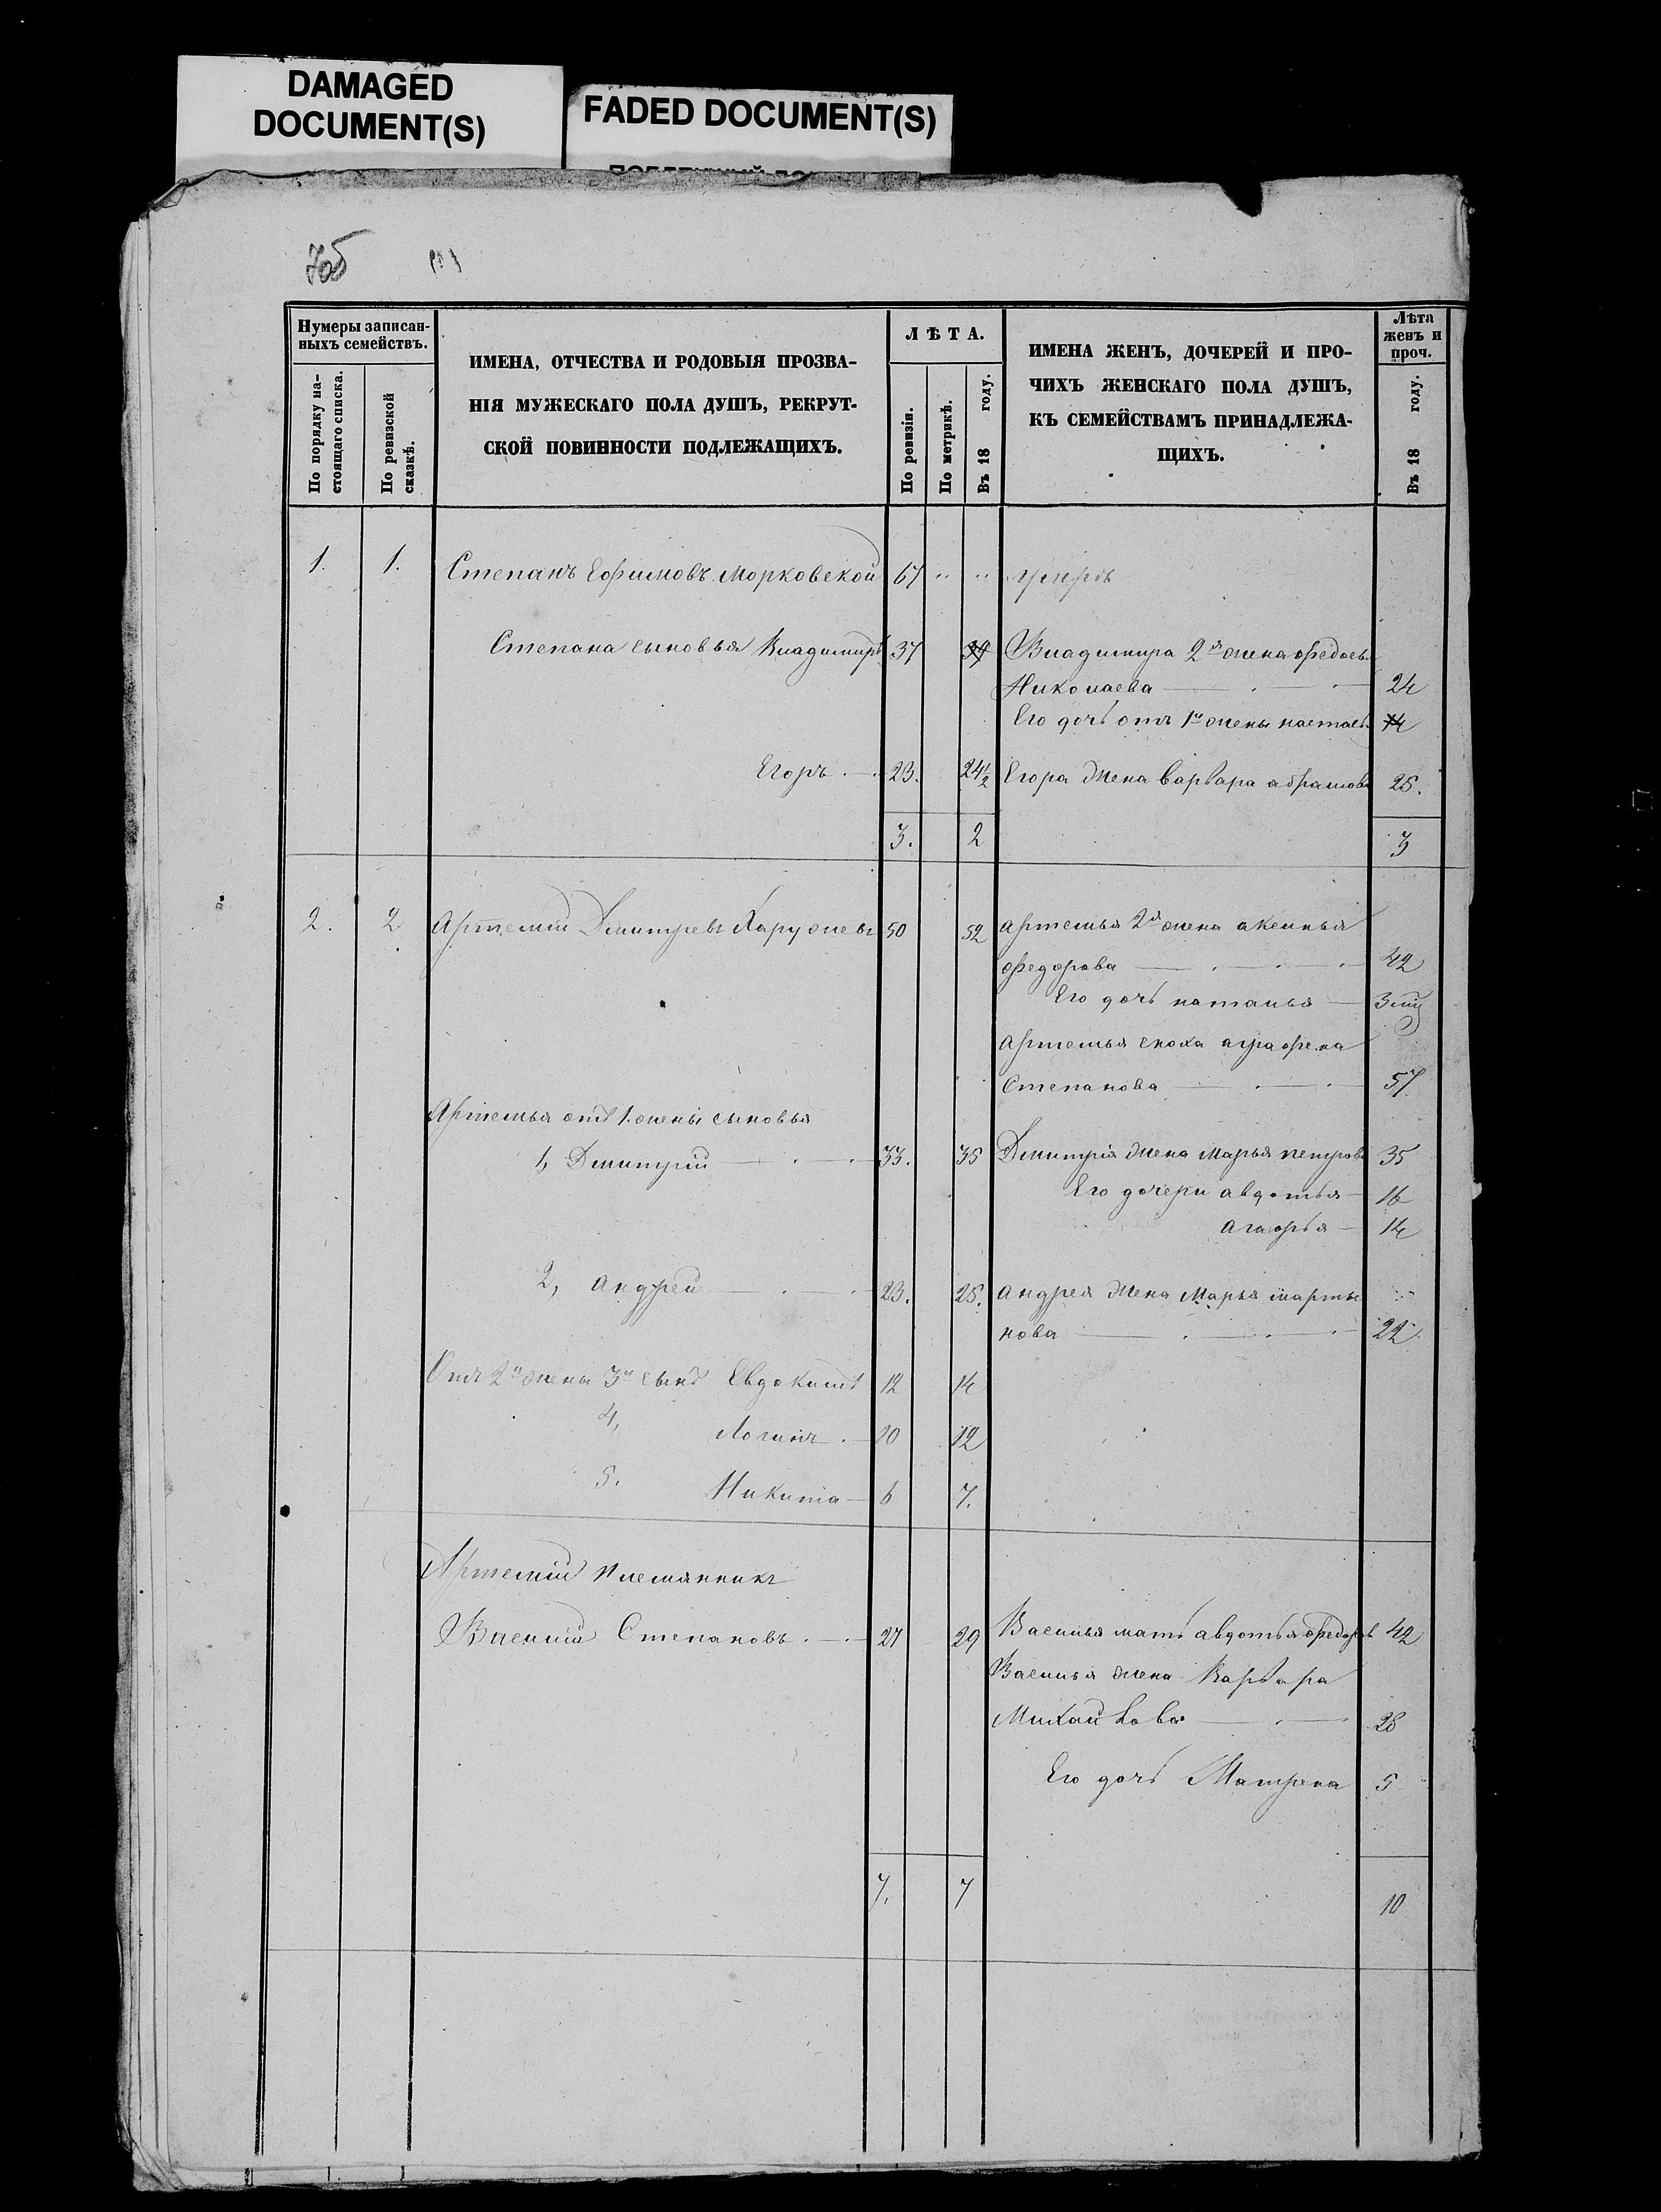 DAMAGED
DOCUMENT(S)
FADED DOCUMENT(S)
705
Нумеры записан-
ныхъ семействъ.
По порядку на-
стоящаго списка.
По ревизской
сказкѣ.
ИМЕНА, ОТЧЕСТВА И РОДОВЫЯ ПРОЗВА-
НІЯ МУЖЕСКАГО ПОЛА ДУШЪ, РЕКРУТ-
СКОЙ ПОВИННОСТИ ПОДЛЕЖАЩИХЪ.
ЛѢТА.
По ревизіи.
По метрикѣ.
Въ 18 году.
ИМЕНА ЖЕНЪ, ДОЧЕРЕЙ И ПРО-
ЧИХЪ ЖЕНСКАГО ПОЛА ДУШЪ,
КЪ СЕМЕЙСТВАМЪ ПРИНАДЛЕЖА-
ЩИХЪ.
Лѣта
женъ и
проч.
Въ 18 году.
1. 1. Степанъ Ефимовъ Морковской 67 " " умръ
Степана сыновья Владимиръ 37 39 Владимира 2я жена Федось
Николаева 24
Его дочь отъ 1й жены настась 14
Егоръ 23. 24½ Егора жена варвара абрамов 25.
3. 2 3
2. 2 Артемій Дмитревъ 50 52 артемья 2я жена аксинья
федорова 42
Его дочь наталья
артемья сноха аграфена
Степанова 57
Артемья отъ 1. жены сыновья
1, Дмитрій 33. 35 Дмитрія жена Марья петров 35
Его дочери авдотья 16
агафья 14
2, андрей 23. 25. андрея жена Марья марты
нова 22
Отъ 2й жены 3й сынъ Евдокимъ 12 14
4, Логинъ 10 12
5. Никита 6 7.
Артемій племянникъ
Василій Степановъ 27 29 Василья мать авдотья федоров 42
Василья жена Варвара
Михайлова 28
Его дочь Матрена 5
7. 7 10